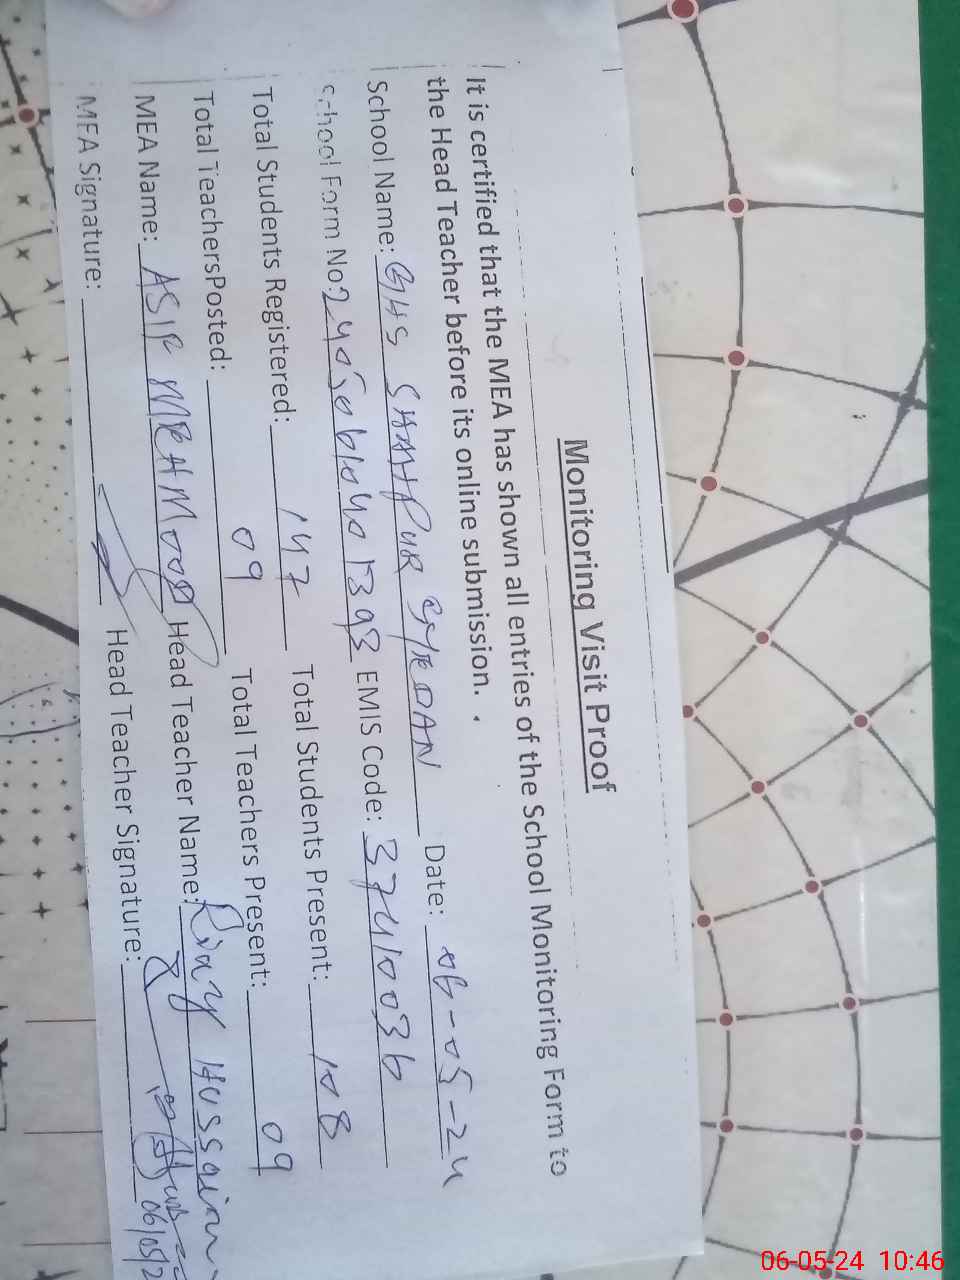 Monitoring Visit Proof
It is certified that the MEA has shown all entries of the School Monitoring Form to
the Head Teacher before its online submission.
School Name: GHS SHAHPUR SYEDAN Date: 06-05-24
School Form No: 24050610401393 EMIS Code: 37410036
Total Students Registered: 147 Total Students Present: 108
Total TeachersPosted: 09 Total Teachers Present: 09
MEA Name: ASIF MEHMOOD Head Teacher Name: Riaz Hussain
MEA Signature: Head Teacher Signature: 06/05/2
06-05-24 10:46